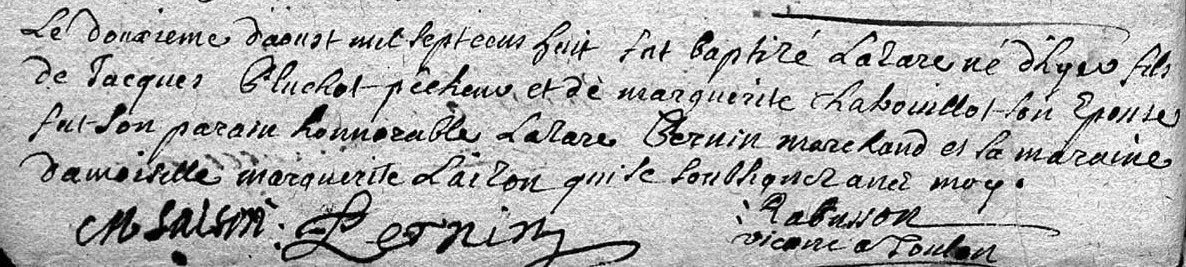 Le douzieme d'aoust mil sept cens huit fut baptizé Lazare né d'hyer fils
de Jacques Pluchot pêcheur et de marguerite Chabouillot son Epouse
fut son parain honnorable Lazare Pernin marchand et sa maraine
damoiselle marguerite qui se soubsignez avec moy.
Pernin Rabusson
vicaire a Toulon